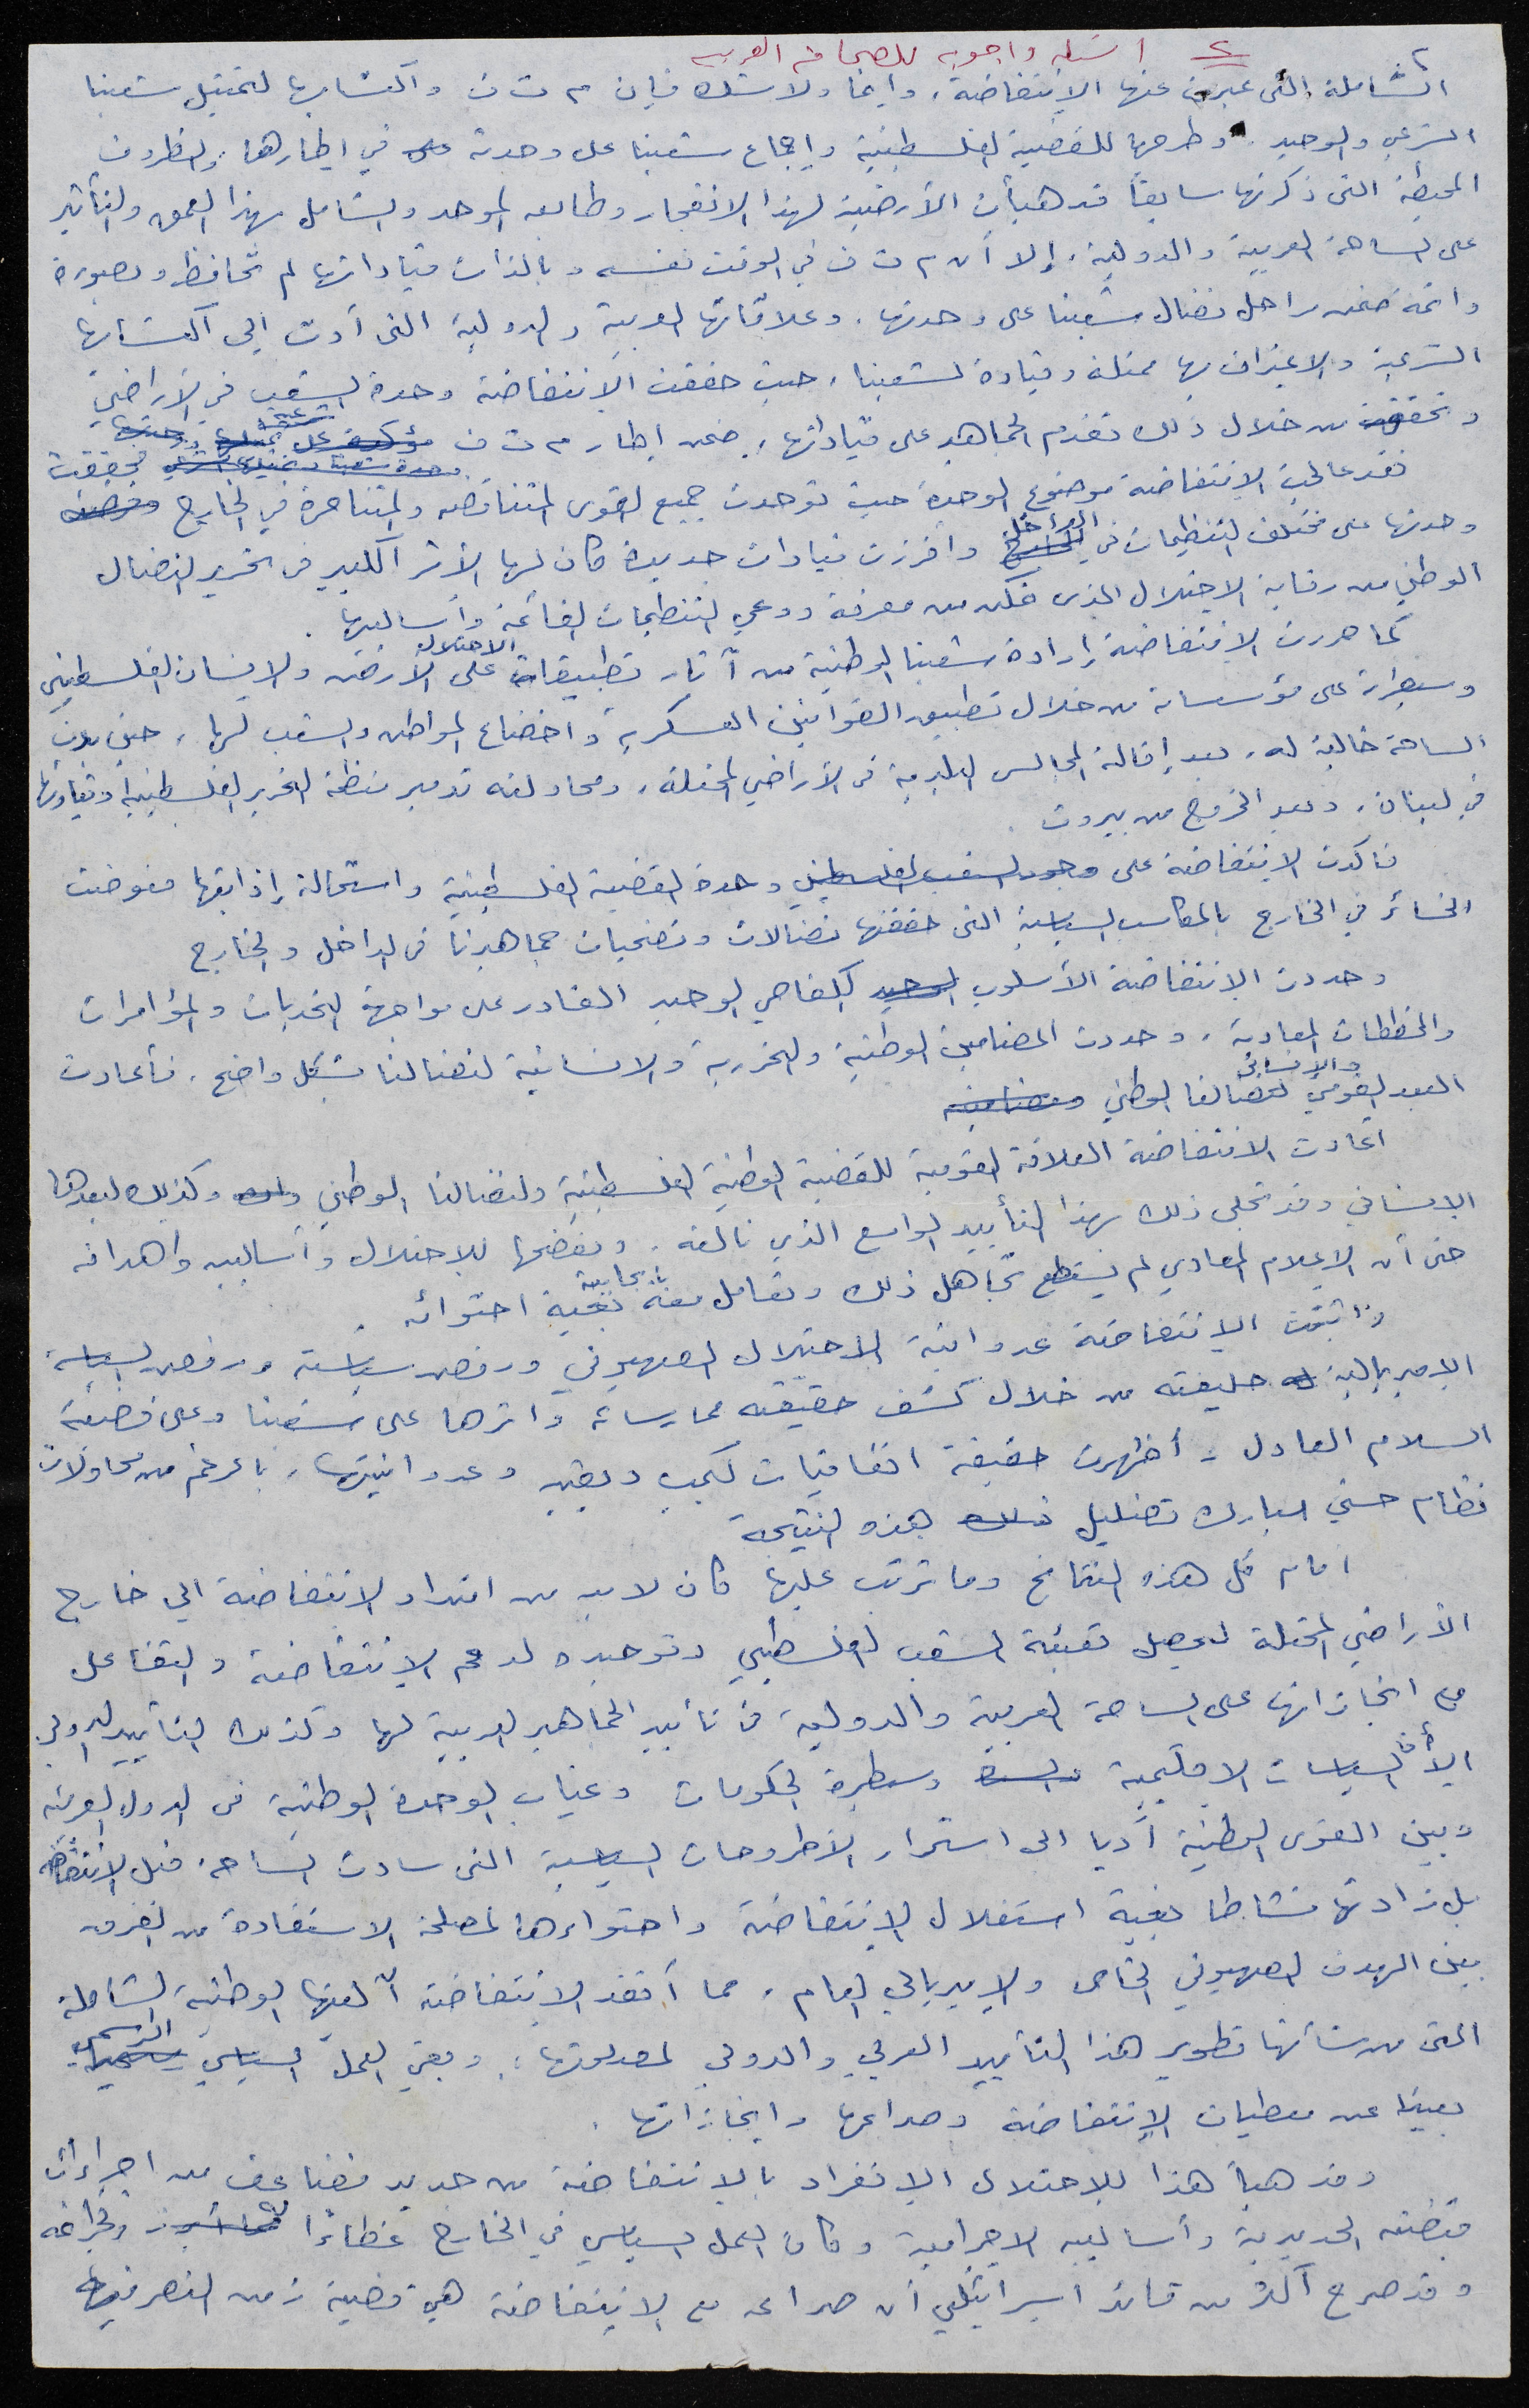 ٢ اسئله واجوبه للصحافه العربيه
٢
الشاملة التي عبرت عنها الانتفاضة، وايضا ولا شك فإن م ت ف واكتسابها لتمثيل شعبنا
الشرعي والوحيد. وطرحها للقضية الفلسطينية وإجماع شعبنا على وحدته في إطارها، والظروف
المحيطة التي ذكرتها سابقاً قد هيأت الأرضية لهذا الانفجار وطابعه الموحد والشامل بهذا العمق والتأثير
على الساحة العربية والدولية. إلا أن م ت ف في الوقت نفسه وبالذات قياداتها لم تحافظ وبصورة
دائمة ضمن مراحل نضال شعبنا على وحدتها. وعلاقاتها العربية والدولية التي أدت إلى اكتسابها
الشرعية والاعتراف بها ممثلة وقيادة لشعبنا، حيث حققت الانتفاضة وحدة الشعب في الأراضي
وتحققت من خلال ذلك تقدم الجماهير على قياداتها، ضمن إطار م ت ف
فقد عالجت الانتفاضة موضوع الوحدة حيث توحدت جميع القوى المتناقضه والمتناحرة في الخارج فحققت
وحدتها على مختلف التنظيمات في الداخل وافرزت قيادات جديدة كان لها الأثر الكبير في تحرير النضال
الوطني من رقابة الاحتلال الذي تمكن من معرفة ووعي التنظيمات القائمة وأساليبها.
كما حررت الانتفاضة إرادة شعبنا الوطنية من آثار تطبيقات الاحتلال على الأرض والانسان الفلسطيني
وسيطرته على مؤسساته من خلال تطبيق القوانين العسكرية واخضاع المواطن والشعب لها، حتى بدت
الساحة خالية له، بعد إقالة المجالس البلدية في الأراضي المحتلة، ومحاولته تدمير منظمة التحرير الفلسطينية وقيادتها
في لبنان، وبعد الخروج من بيروت.
فأكدت الانتفاضة على وجود الشعب الفلسطيني وحدة القضية الفلسطينية واستحالة إذابتها فعوضت
الخسائر في الخارج بالمكاسب السياسية التي حققتها نضالات وتضحيات جماهيرنا في الداخل والخارج
وحددت الانتفاضة الأسلوب الكفاحي الوحيد القادر على مواجهة التحديات والمؤامرات
والمخططات المعادية، وحددت المضامين الوطنية والتحررية والانسانية لنضالنا بشكل واضح. فأعادت
البعد القومي والانساني لنضالنا الوطني
اعادت الانتفاضة العلاقة القومية للقضية الوطنية الفلسطينية ولنضالنا الوطني وكذلك لبعدها
الانساني وقد تجلى ذلك بهذا التأييد الواسع الذي نالته. وبفضحها للاحتلال وأساليبه واهدافه
حتى أن الإعلام المعادي لم يستطع تجاهل ذلك وتعامل معه بإيجابية بغية احتوائه.
واثبتت الانتفاضة عدوانية الاحتلال الصهيوني ورفض سياسته ورفض السياسة
الامبريالية حليفته من خلال كشف حقيقة ممارساته واثرها على شعبنا وعلى قضية
السلام العادل. أظهرت حقيقة اتفاقيات كمب ديفيد وعدوانيتها، بالرغم من محاولات
نظام حسني مبارك تضليل هذه النتيجة
امام كل هذه النتائج وما ترتب عليها كان لابد من امتداد الانتفاضة الى خارج
الأراضي المحتلة ليصل تعبئة الشعب الفلسطيني وتوحيده لدعم الانتفاضة والتفاعل
مع انجازاتها على الساحة العربية والدولية من تأييد الجماهير العربية لها وكذلك التأييد الدولي
إلا أن السياسات الاقليمية وسيطرة الحكومات وغياب الوحدة الوطنية في الدول العربية
وبين القوى الوطنية أديا الى استمرار الأطروحات السياسية التي سادت الساحة قبل الانتفاضة
بل زادتها نشاطا بغية استغلال الانتفاضة واحتواءها لمصلحة الاستفادة من الفرق
بين الهدف الصهيوني الخاص والامبريالي العام، مما أفقد الانتفاضة آليتها الوطنية الشاملة
التي من شأنها تطوير هذا التأييد العربي والدولي لمصلحتها، وبقي العمل السياسي الرسمي
بعيدا عن معطيات الانتفاضة وصراعها وانجازاتها.
وقد هيأ هذا للاحتلال الانفراد بالانتفاضة من جديد فضاعف من اجراءات
قبضته الحديدية وأساليبه الاجرامية وكان العمل السياسي في الخارج غطاءً ولجرائمه
وقد صرح أكثر من قائد اسرائيلي أن صراعه مع الانتفاضة هي قضية زمن